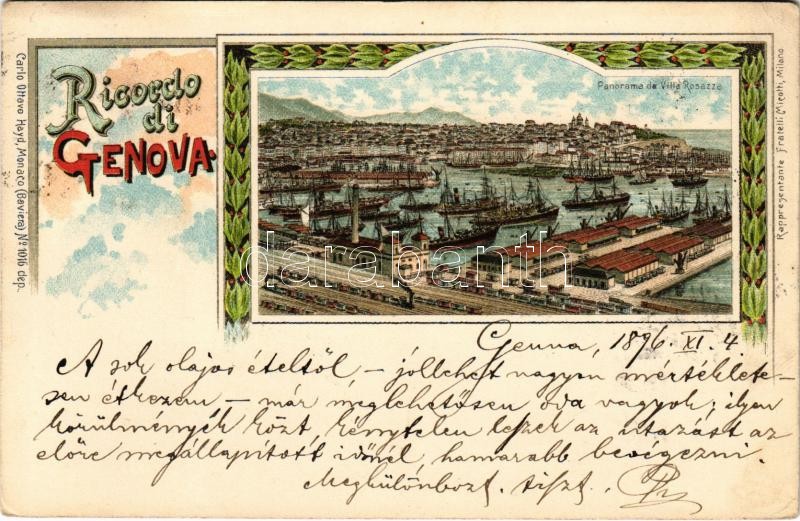 Ricordo
di
GENOVA.
Panorama da Villa Rosazza
Carlo Ottavo Hayd, Monaco (Baviera) No 1016 dep.
Rappresentante Fratelli Micotti, Milano
darabanth
Genua, 1896. XI. 4
A sok olajos ételtől – jóllehet nagyon mértéklete-
sen étkezem – már meglehetősen oda vagyok; ilyen
körülmények közt, kénytelen leszek az utazást az
előre megállapított időnél, hamarabb bevégezni.
Megkülönbözt. tiszt.